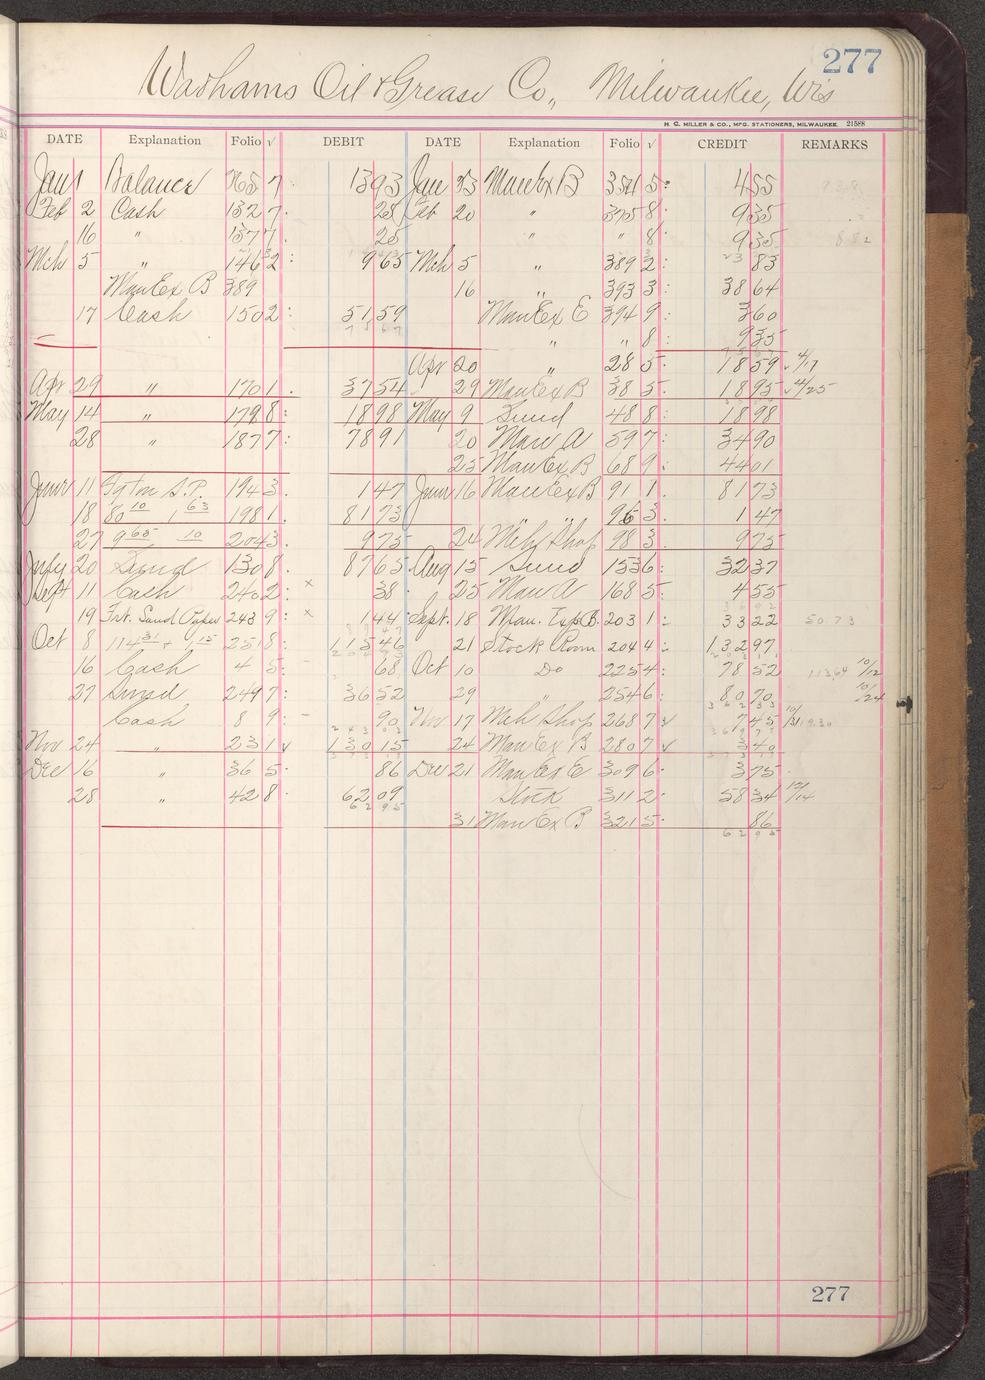 277
Wadhams Oil & Grease Co., Milwaukee, Wis
H. C. MILLER & CO., MFG. STATIONERS, MILWAUKEE. 21588
DATE Explanation Folio √ DEBIT DATE Explanation Folio √ CREDIT REMARKS
Jan 1 Balance 765 7 1393 Jan 33 ManExB 354 5 455
Feb 2 Cash 132 7 28 Feb 20 " 375 8 935
16 " 137 7 25 " " 8 935
Mch 5 " 146 2 965 Mch 5 " 389 2 83
ManEx B 389 16 " 393 3 3864
17 Cash 150 2 5159 ManEx E 394 9 360
" " 8 935
Apr 20 28 5 1859 4/17
Apr 29 " 170 1 3754 29 ManEx B 38 5 1895 4/25
May 14 " 179 8 1898 May 9 Sund 48 8 1898
28 " 187 7 7891 20 Man A 59 7 3490
25 ManEx B 68 9 4401
June 11 S.P. 194 3 147 June 16 ManExB 91 1 8173
18 80 10 1 63 198 1 8173 " " 96 3 147
27 9 65 10 204 3 975 24 Mch Shop 98 3 975
July 20 Sund 130 8 8765 Aug 15 Sund 153 6 3237
Sept 11 Cash 240 2 × 38 25 Man A 168 5 455
19 Frt. Sand Paper 243 9 × 144 Sept. 18 Man. Exp B. 203 1 3322 50 73
Oct 8 114 31 + 1 15 251 8 11546 21 Stock Room 204 4 13297
16 Cash 4 5 68 Oct 10 Do 225 4 7852 10/12
27 Sund 249 7 3652 29 " 254 6 8070 10/24
Cash 8 9 90 Nov 17 Mch Shop 268 7 √ 745 10/31
Nov 24 " 23 1 √ 13015 24 ManEx B 280 7 √ 340
Dec 16 " 36 5 86 Dec 21 ManEx E 309 6 375
28 " 42 8 6209 Stock 311 2 5834 12/14
6295 31 ManEx B 321 5 86
6295
277